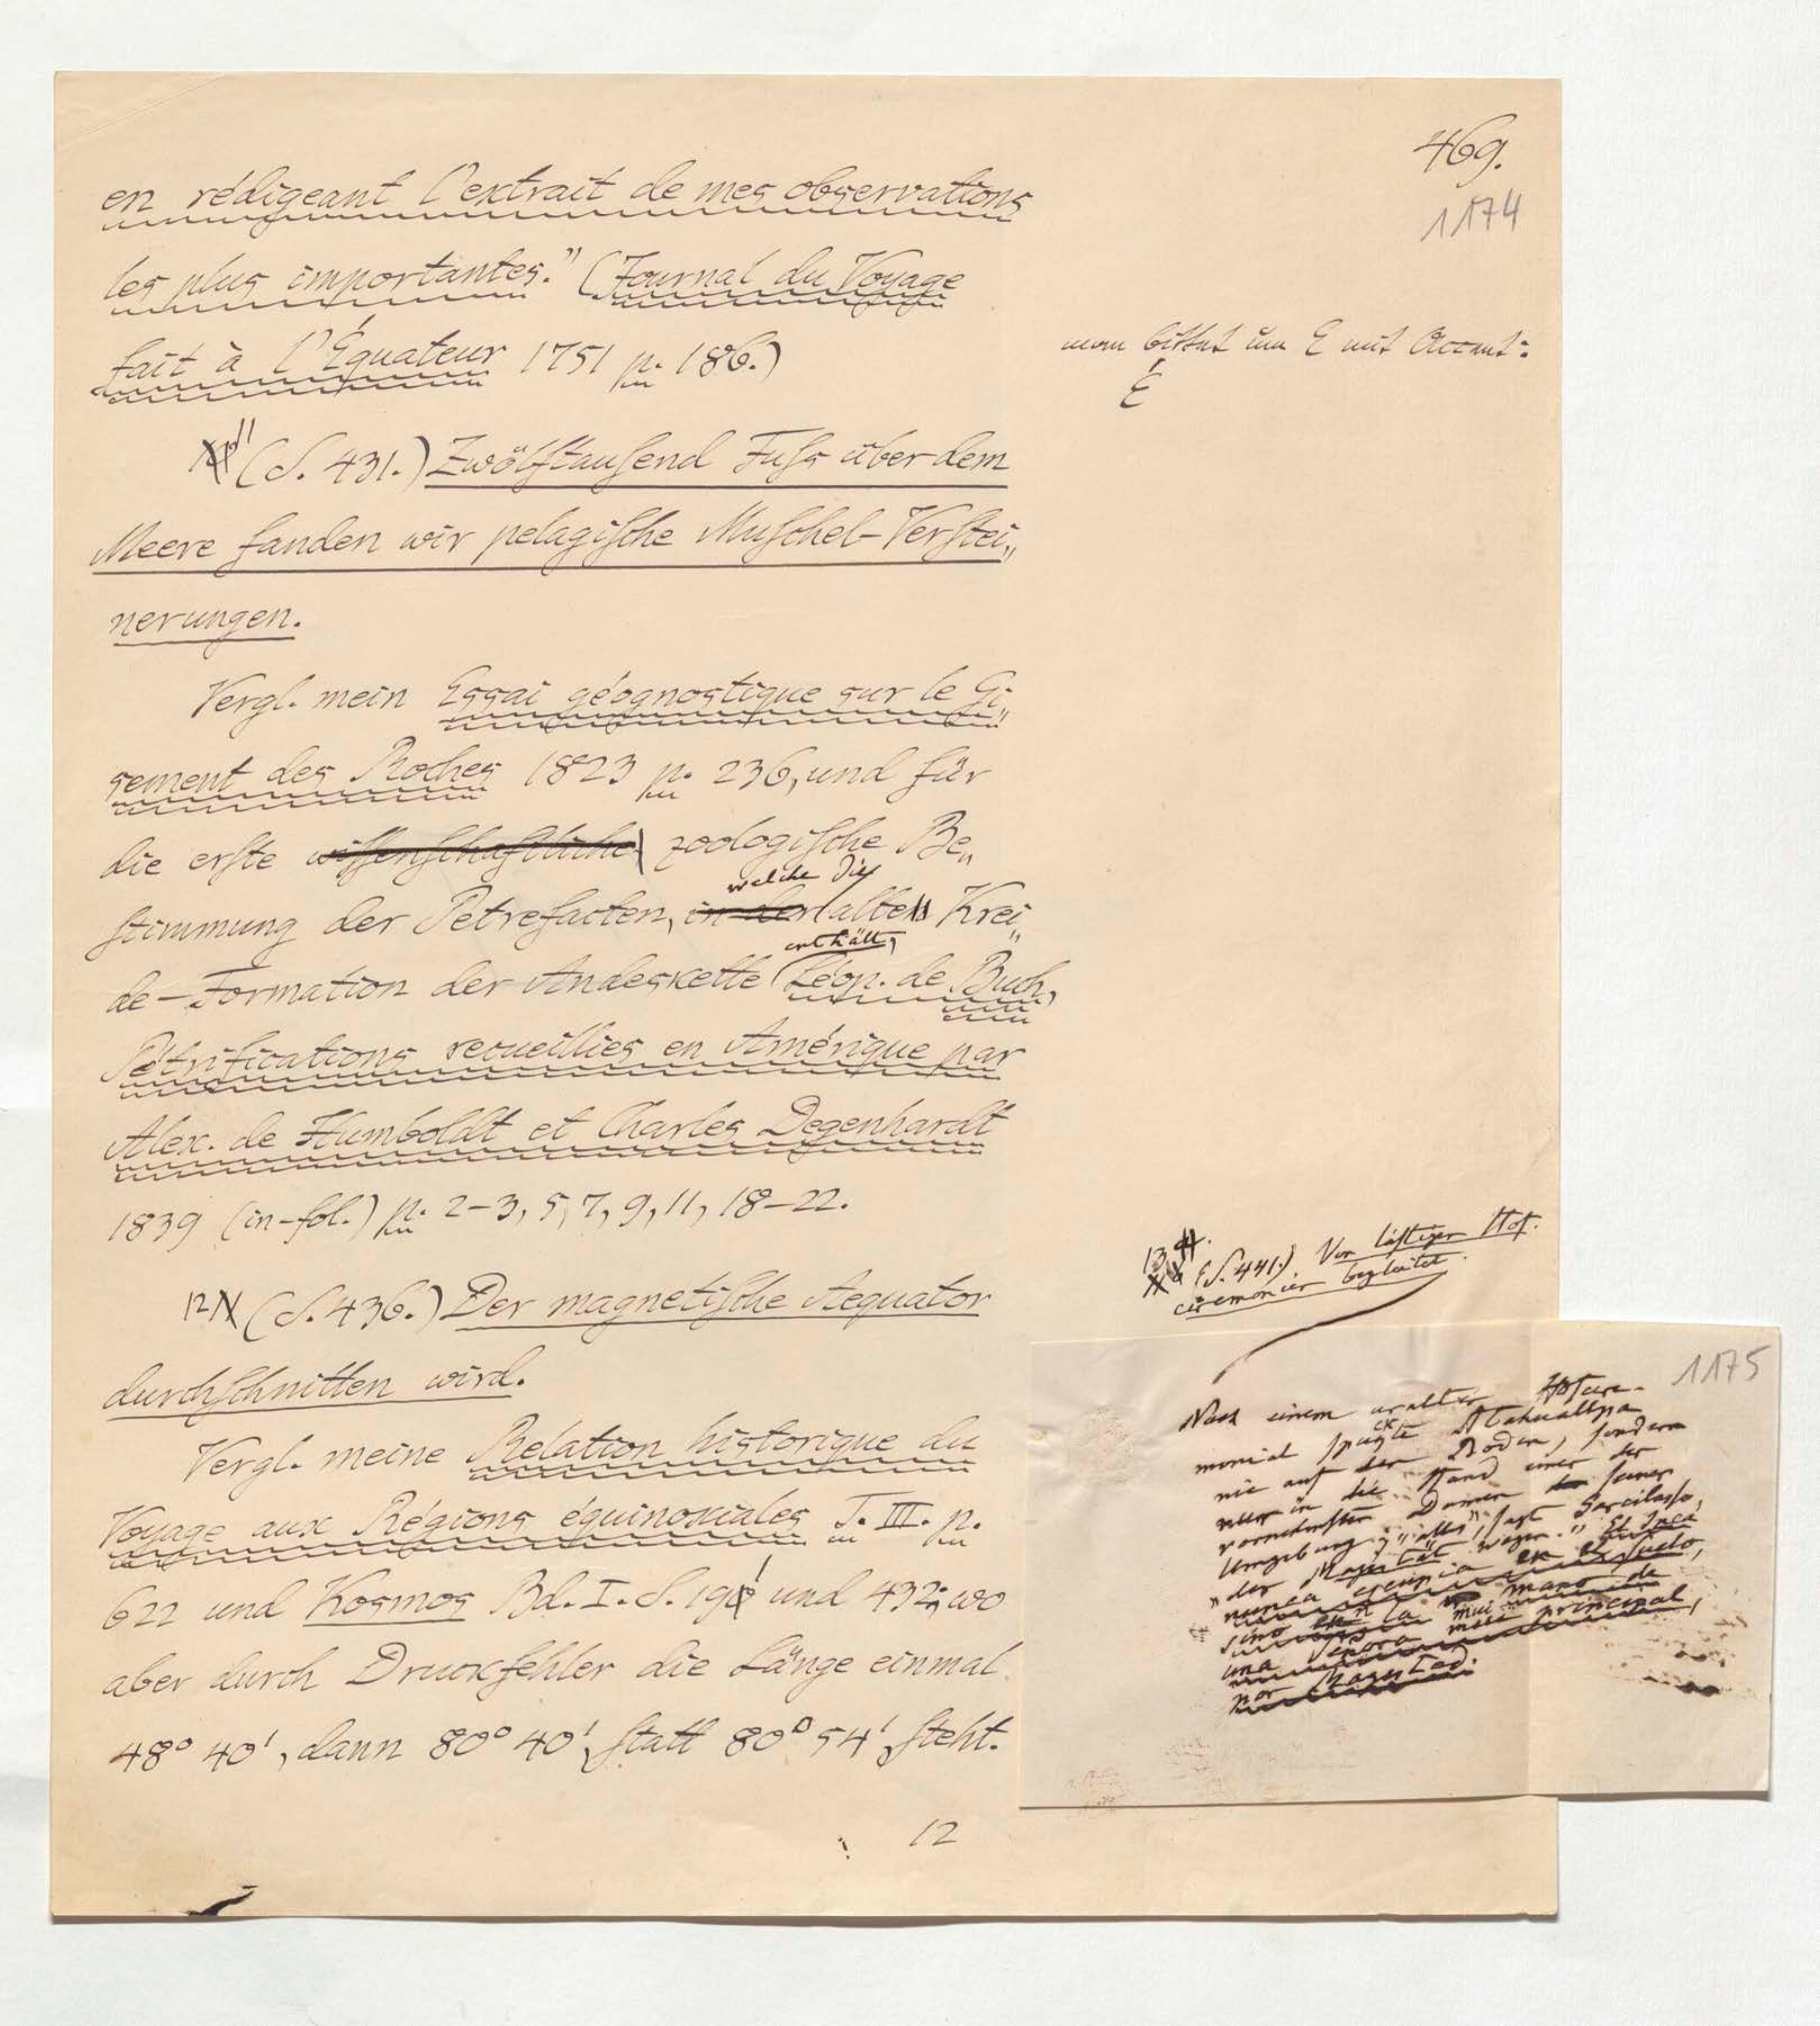 469.
1174
en rédigeant l'extrait de mes observations
les plus importantes." (Journal du Voyage
fait à l'Équateur 1751 p. 186.)
man bittet um E mit Accent:
É
11 (S. 431.) Zwölftausend Fuss über dem
Meere fanden wir pelagische Muschel-Verstei„
nerungen.
Vergl. mein Essai géognostique sur le Gi„
sement des Roches 1823 p. 236, und für
die erste wissenschaftliche zoologische Be„
welche die
stimmung der Petrefacten, in der alten Krei„
enthält,
de-Formation der Andeskette (Léop. de Buch,
Pétrifications recueillies en Amérique par
Alex. de Humboldt et Charles Degenhardt
1839 (in-fol.) p. 2-3, 5, 7, 9, 11, 18-22.
12 (S. 436.) Der magnetische Aequator
durchschnitten wird.
Vergl. meine Relation historique du
Voyage aux Régions équinoxiales T. III. p.
622 und Kosmos Bd. I. S. 191 und 432; wo
aber durch Druckfehler die Länge einmal
48° 40', dann 80° 40', statt 80° 54', steht.
12
13 (S. 441.) Von lästigem Hof-
ceremoniel begleitet.
1175
Nach einem uralten Hofcere-
moniel spuckte Atahuallpa
nie auf den Boden, sondern
in die Hand einer der
vornehmsten Damen seiner
Umgebung; "alles", sagt Garcilasso,
"der Majestät wegen." El Inca
nunca escupia en el suelo,
sino en la mano de
una Señora mui principal,
por Magestad.